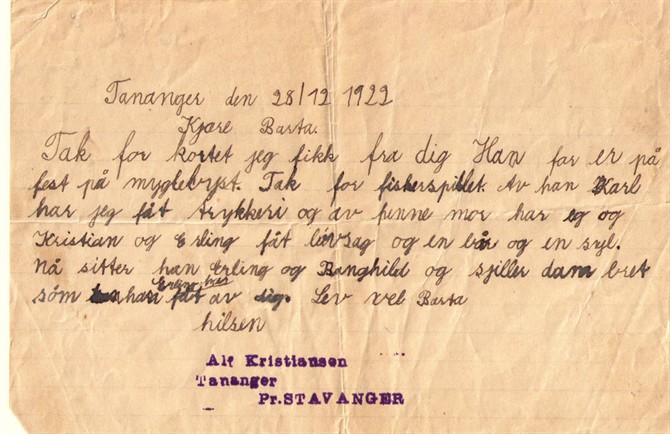 Tananger den 28/12 1922
Kjære Barta.
Tak for kortet jeg fikk fra dig Han far er på
fest på myglebyst. Tak for fiskerspillet. Av han Karl
har jeg fåt trykkeri og av henne mor har eg og
Kristian og Erling fåt løvsag og en bår og en syl.
Nå sitter han Erling og Ranghild og spiller dam bret
søm han Erling har fåt av dig. Lev vel Barta
hilsen
Alf Kristiansen
Tananger
Pr.STAVANGER